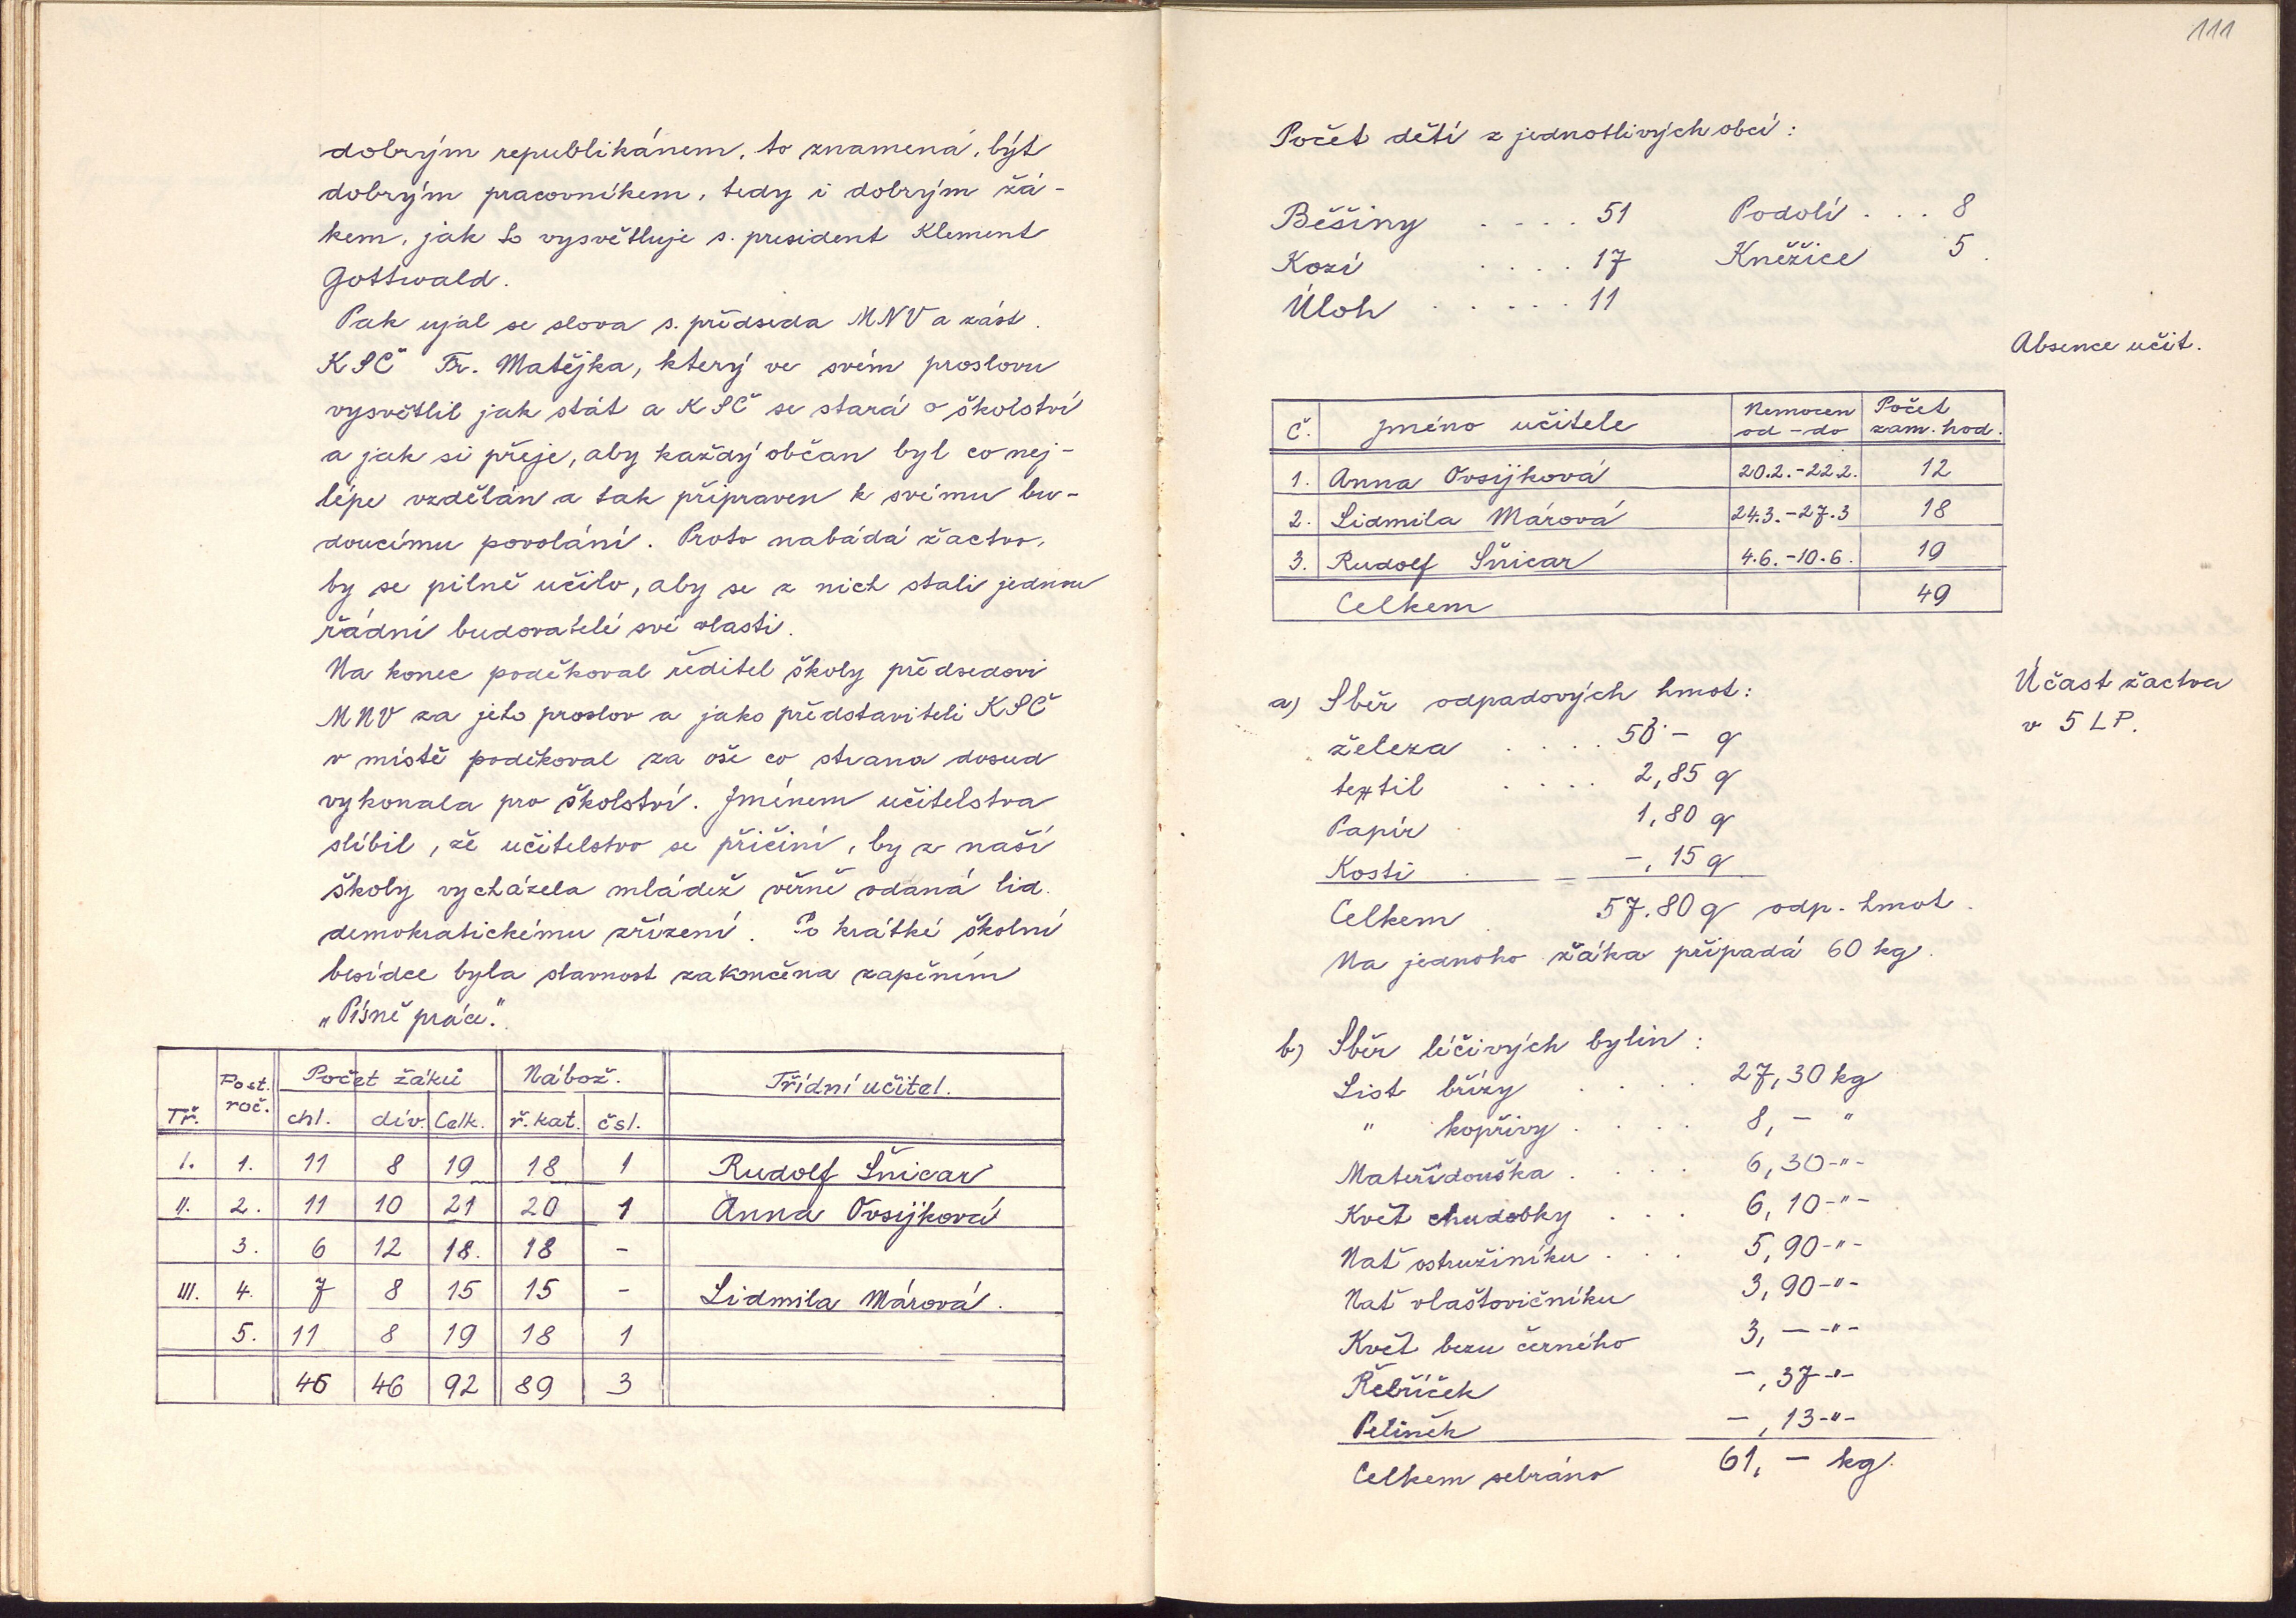 dobrým republikánem, to znamená, být
dobrým pracovníkem, tedy i dobrým žá-
kem, jak to vysvětluje s. president Klement
Gottwald.
Pak ujal se slova s. předseda MNV a zást.
KSČ Fr. Matějka, který ve svém proslovu
vysvětlil jak stát a KSČ se stará o školství
a jak si přeje, aby každý občan byl co nej-
lépe vzdělán a tak připraven k svému bu-
doucímu povolání. Proto nabádá žactvo,
by se pilně učilo, aby se z nich stali jednou
řádní budovatelé své vlasti.
Na konec poděkoval ředitel školy předsedovi
MNV za jeho proslov a jako představiteli KSČ
v místě poděkoval za vše co strana dosud
vykonala pro školství. Jménem učitelstva
slíbil, že učitelstvo se přičiní, by z naší
školy vycházela mládež věrně odaná lid.
demokratickému zřízení. Po krátké školní
besídce byla slavnost zakončena zapěním
„Písně práce."
Tř. Post. roč. Počet žáků Nábož. Třídní učitel.
chl. dív. Celk. ř.kat. čsl.
I. 1. 11 8 19 18 1 Rudolf Šnicar
II. 2. 11 10 21 20 1 Anna Ovsijková
3. 6 12 18. 18 -
III. 4. 7 8 15 15 - Lidmila Márová.
5. 11 8 19 18 1
46 46 92 89 3
111
Počet dětí z jednotlivých obcí:
Běšiny . . . . 51 Podolí . . . 8
Kozí . . . . 17 Kněžice 5.
Úloh . . . . . 11
Absence učit.
Č. Jméno učitele Nemocen od - do Počet zam. hod.
1. Anna Ovsijková 20.2.-22.2. 12
2. Lidmila Márová 24.3.-27.3 18
3. Rudolf Šnicar 4.6.-10.6. 19
Celkem 49
Účast žactva
v 5 LP.
a) Sběr odpadových hmot:
železa . . . . 53 - q
textil . . . . 2,85 q
Papír . 1,80 q
Kosti . -, 15 q
Celkem . 57.80 q odp. hmot.
Na jednoho žáka připadá 60 kg.
b) Sběr léčivých bylin:
List břízy . . . . 27,30 kg
" kopřivy . . . . 8, - "
Mateřídouška . . . . 6,30 -"-
Květ chudobky . . . 6,10 -"-
Nať ostružiníku . . . 5,90 -"-
Nať vlaštovičníku 3,90 -"-
Květ bezu černého 3, - -"-
Řebříček -, 37 -"-
Pelyněk -, 13 -"-
Celkem sebráno 61, - kg.